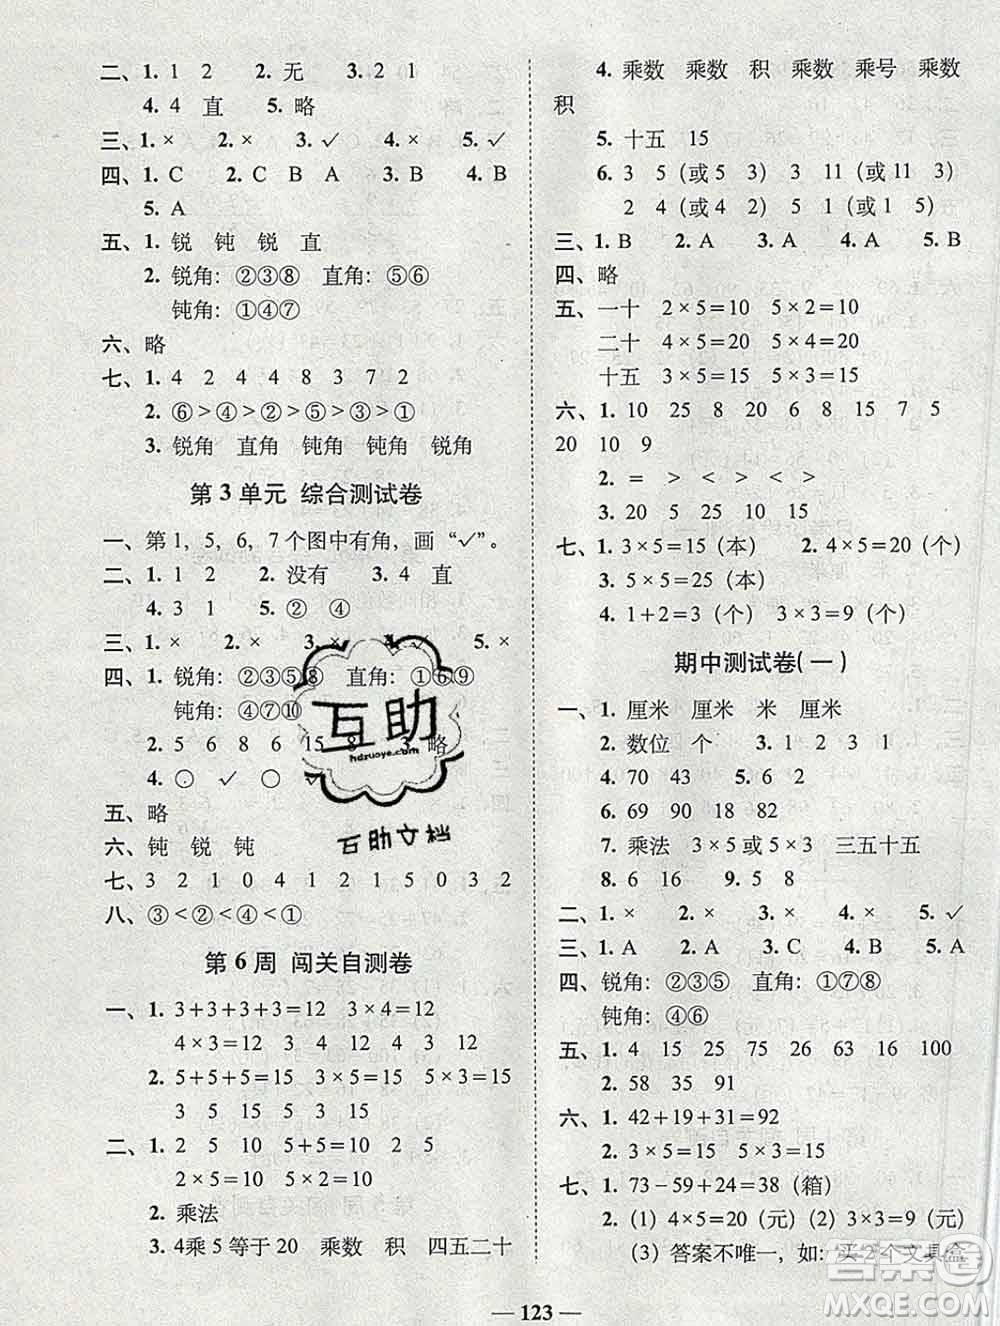 二、1. 1 2 2. 无 3. 2 1
4. 4 直 5. 略
三、1. × 2. × 3. ✓ 4. × 5. ✓
四、1. C 2. C B A 3. B 4. B
5. A
五、1. 锐 钝 锐 直
2. 锐角：②③⑧ 直角：⑤⑥
钝角：①④⑦
六、略
七、1. 4 2 4 4 8 3 7 2
2. ⑥>④>②>⑤>③>①
3. 锐角 直角 钝角 钝角 锐角
第3单元 综合测试卷
一、第1，5，6，7个图中有角，画“✓”。
二、1. 1 2. 没有 3. 4 直
4. 3 1 5. ② ④
三、1. × 2. × 3. × 4. × 5. ×
四、1. 锐角：②③⑤⑧ 直角：①⑥⑨
钝角：④⑦⑩
2. 5 6 8 6 15 8 3. 略
4. ○ ✓ ○ ✓
五、略
六、钝 锐 钝
七、3 2 1 0 4 1 2 1 5 0 3 2
八、③<②<④<①
第6周 闯关自测卷
一、1. 3+3+3+3=12 3×4=12
4×3=12 3 4 3 12
2. 5+5+5=15 3×5=15 5×3=15
3 5 15 5 3 15
二、1. 2 5 10 5+5=10 2 5
2×5=10 5×2=10
2. 乘法
3. 4乘5等于20 乘数 积 四五二十
4. 乘数 乘数 积 乘数 乘号 乘数
积
5. 十五 15
6. 3 5（或5 3） 3 11（或11 3）
2 4（或4 2） 5 1（或1 5）
三、1. B 2. A 3. A 4. A 5. B
四、略
五、一十 2×5=10 5×2=10
二十 4×5=20 5×4=20
十五 3×5=15 5×3=15
六、1. 10 25 8 20 6 8 15 7 5
20 10 9
2. = > < > < <
3. 20 5 25 10 15
七、1. 3×5=15（本） 2. 4×5=20（个）
3. 5×5=25（本）
4. 1+2=3（个） 3×3=9（个）
期中测试卷(一)
一、1. 厘米 厘米 米 厘米
2. 数位 个 3. 1 2 3 1
4. 70 43 5. 6 2
6. 69 90 18 82
7. 乘法 3×5或5×3 三五十五
8. 6 16 9. 5 8
二、1. × 2. × 3. × 4. × 5. ✓
三、1. A 2. A 3. C 4. B 5. A
四、锐角：②③⑤ 直角：①⑦⑧
钝角：④⑥
五、1. 4 15 25 75 63 16 100
2. 58 35 91
六、1. 42+19+31=92
2. 3×5=15 5×3=15
七、1. 73-59+24=38（箱）
2. (1) 4×5=20（元）(2) 3×3=9（元）
(3) 答案不唯一，如：买2个文具盒
123
互助
hdzuoye.com
互助文档
答案圈
MXQE.COM